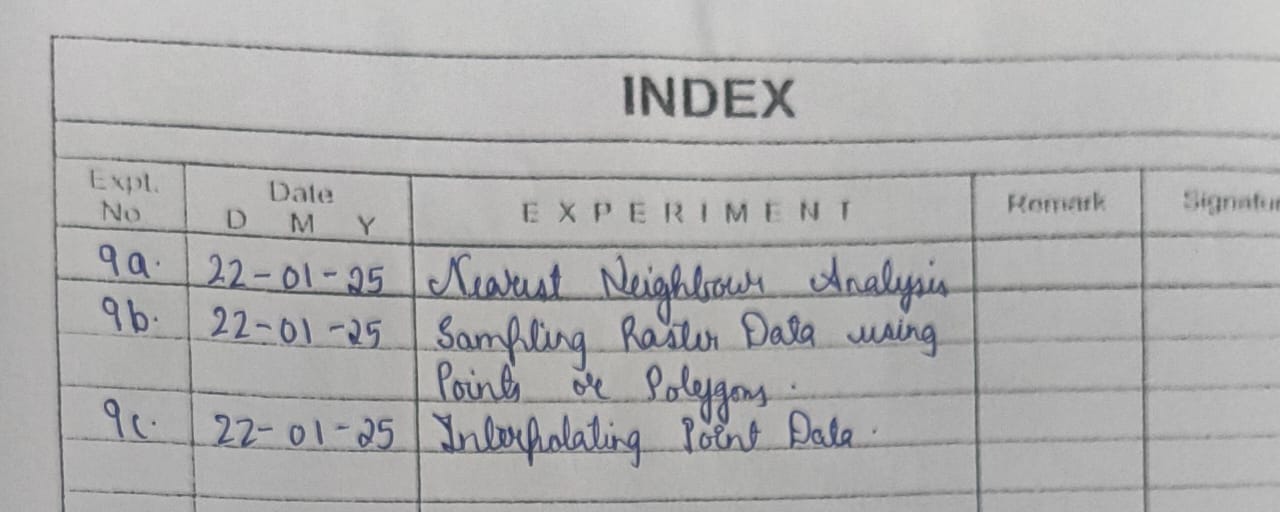 INDEX
Expt. No Date D M Y EXPERIMENT Remark Signatur
9a. 22-01-25 Nearest Neighbour Analysis
9b. 22-01-25 Sampling Raster Data using
Points or Polygons.
9c. 22-01-25 Interpolating Point Data.